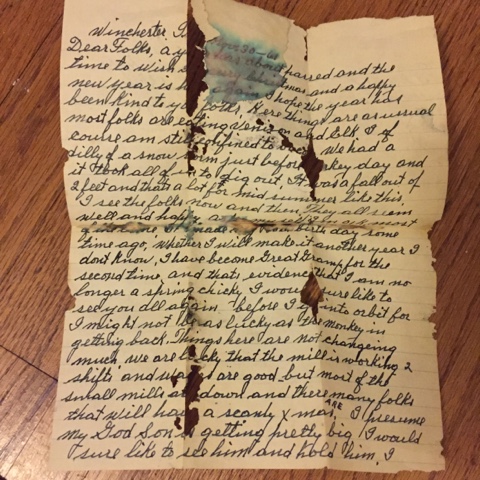 Winchester I
Dear Folks, a y has about passed and the
time to wish a Merry Christmas and a happy
new year is h again. I hope the year has
been kind to you folks. Here things are as usual
most folks are eating venison and elk. I of
course am still confined to We had a
dilly of a snow storm just before key day and
it took all of us to dig out. It was a fall out of
2 feet and thats a lot for mid summer like this.
I see the folks now and then. They all seem
well and happy a
birthday some
time ago, whether I will make it another year I
dont know, I have become Great Gramp for the
second time, and thats evidence that I am no
longer a spring chicky. I would sure like to
see you all again before I go into orbit for
I might not be as lucky as the monkey in
getting back. Things here are not changeing
much. we are lucky that the mill is working 2
shifts and wages are good but most of the
small mills are down and there ARE many folks
that will have a scanty xmas. I presume
my God Son is getting pretty big, I would
sure like to see him and hold him. I